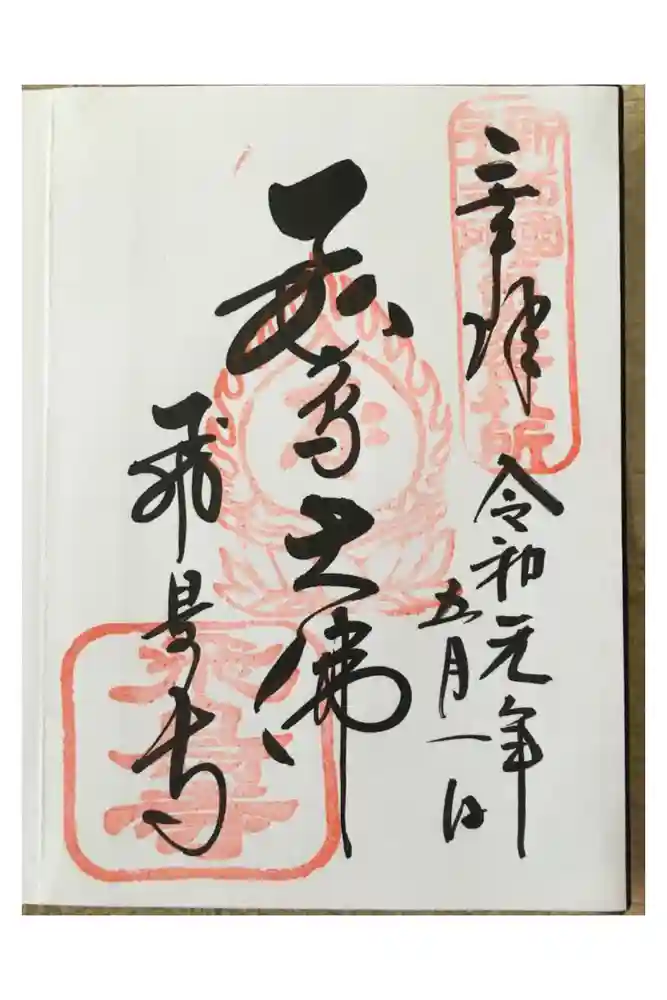 奉拝
令和元年
五月一日
飛鳥大佛
飛鳥寺
飛鳥寺